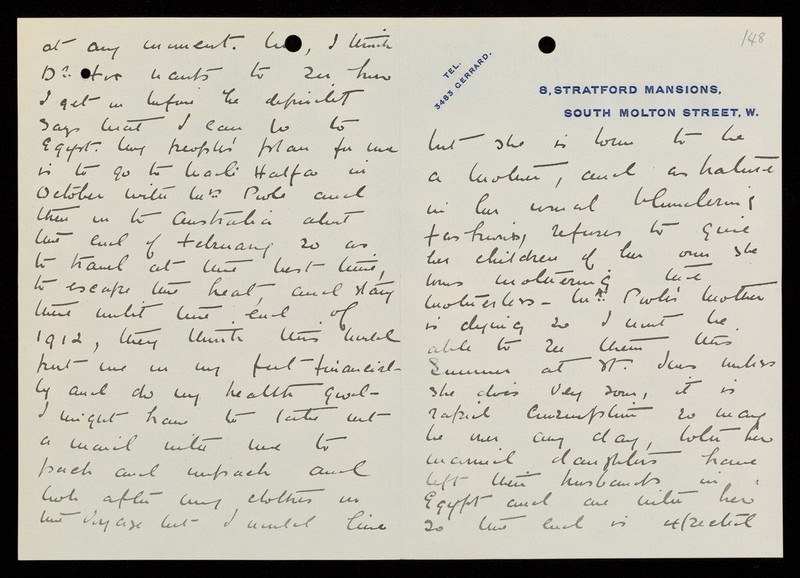 at any moment. , I think
Dr. Fox wants to see how
I get on before he definitely
says that I can go to
Egypt. My people's plan for me
is to go to Wadi Halfa in
October with Mrs Poole and
then on to Australia about
the end of February so as
to travel at the best time,
to escape the heat, and stay
there until the end of
1912, they think this would
put me on my feet financial-
ly and do my health good-
I might have to take out
a maid with me to
pack and unpack and
look after my clothes on
the voyage but I would live
148
TEL.
3483 GERRARD.
8, STRATFORD MANSIONS,
SOUTH MOLTON STREET, W.
but she is born to be
a mother, and as nature
in her usual blundering
fashion, refuses to give
her children of her own she
loves mothering the
motherless - Mrs Poole's mother
is dying so I wont be
able to see them this
Summer at St. Ives unless
she does very soon, it is
rapid Consumption so may
be over any day, both her
married daughters have
left their husbands in
Egypt and are with her
so the end is expected